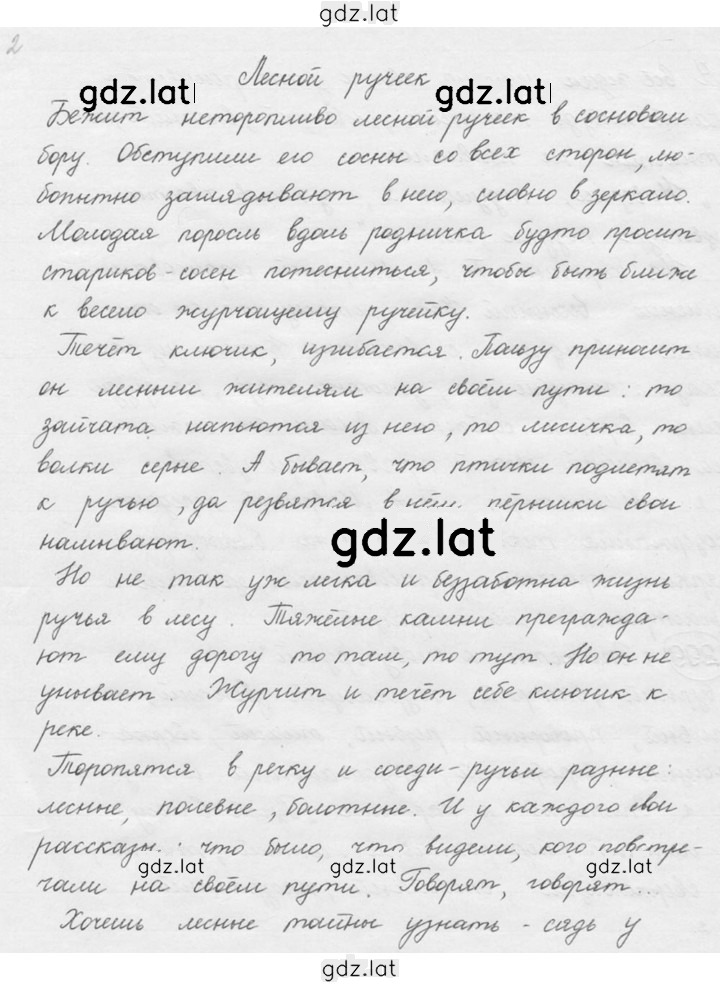 gdz.lat
2
Лесной ручеек
gdz.lat gdz.lat
Бежит неторопливо лесной ручеек в сосновом
бору. Обступили его сосны со всех сторон, лю-
бопытно заглядывают в него, словно в зеркало.
Молодая поросль вдоль родничка будто просит
стариков-сосен потесниться, чтобы быть ближе
к весело журчащему ручейку.
Течёт ключик, изгибается. Пользу приносит
он лесным жителям на своём пути: то
зайчата напьются из него, то лисичка, то
волки серые. А бывает, что птички подлетят
к ручью, да резвятся в нём. пёрышки свои
намывают.
gdz.lat
Но не так уж легка и беззаботна жизнь
ручья в лесу. Тяжёлые камни прегражда-
ют ему дорогу то там, то тут. Но он не
унывает. Журчит и течёт себе ключик к
реке.
Торопятся в речку и соседи-ручьи разные:
лесные, полевые, болотные. И у каждого свои
рассказы: что было, что видели, кого повстре-
чали на своём пути. Говорят, говорят
gdz.lat gdz.lat gdz.lat
Хочешь лесные тайны узнать - сядь у
gdz.lat